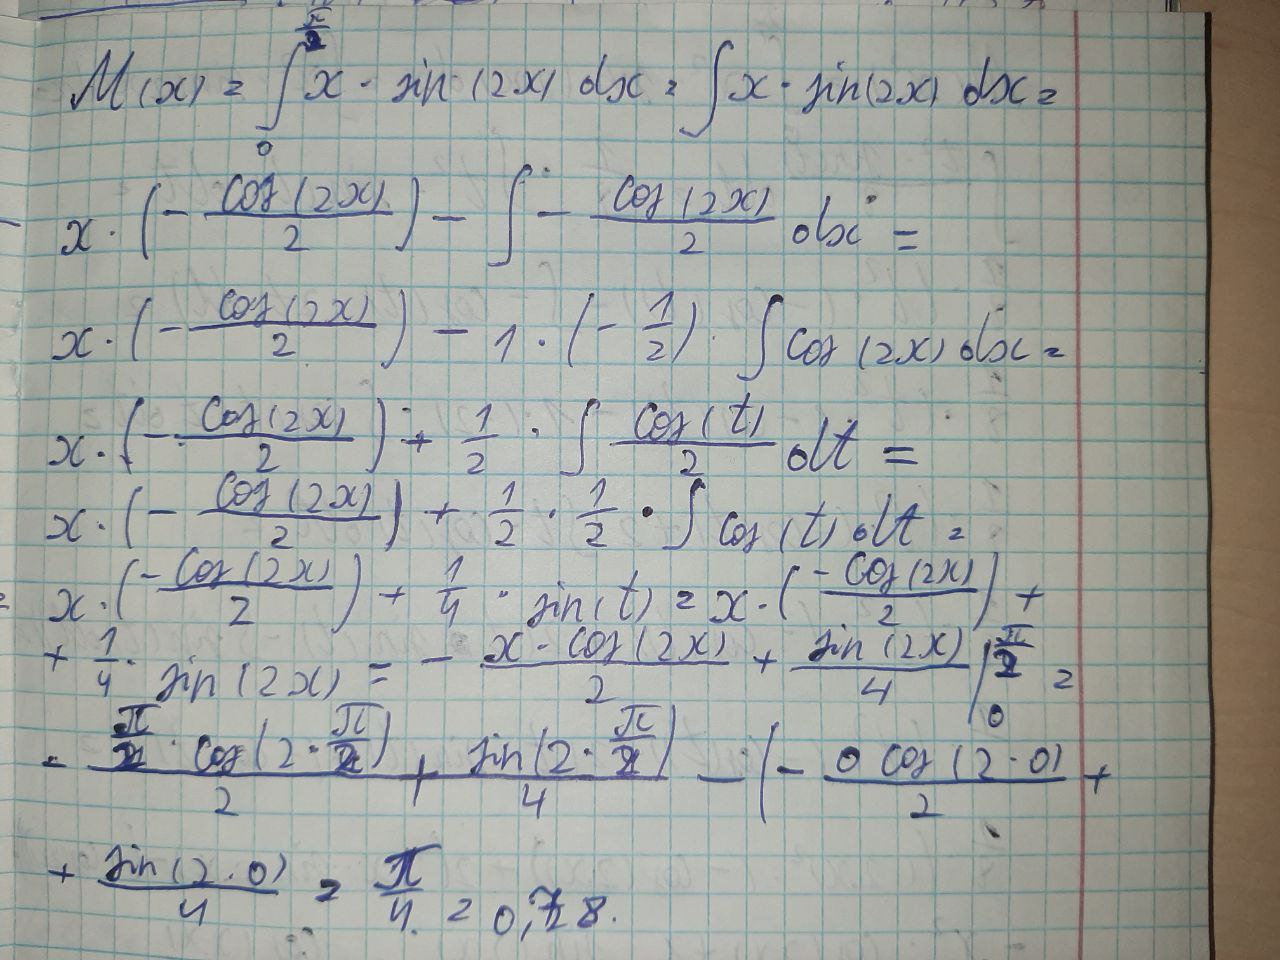 M(x) = ∫₀^(π/2) x · sin(2x) dx = ∫ x · sin(2x) dx =
x · (- cos(2x)/2) - ∫ - cos(2x)/2 dx =
x · (- cos(2x)/2) - 1 · (- 1/2) · ∫ cos(2x) dx =
x · (- cos(2x)/2) + 1/2 · ∫ cos(t)/2 dt =
x · (- cos(2x)/2) + 1/2 · 1/2 · ∫ cos(t) dt =
= x · (- cos(2x)/2) + 1/4 · sin(t) = x · (- cos(2x)/2) +
+ 1/4 · sin(2x) = - x · cos(2x)/2 + sin(2x)/4 |₀^(π/2) =
- π/2 · cos(2 · π/2)/2 + sin(2 · π/2)/4 - (- 0 cos(2 · 0)/2 +
+ sin(2 · 0)/4 = π/4 = 0,78.